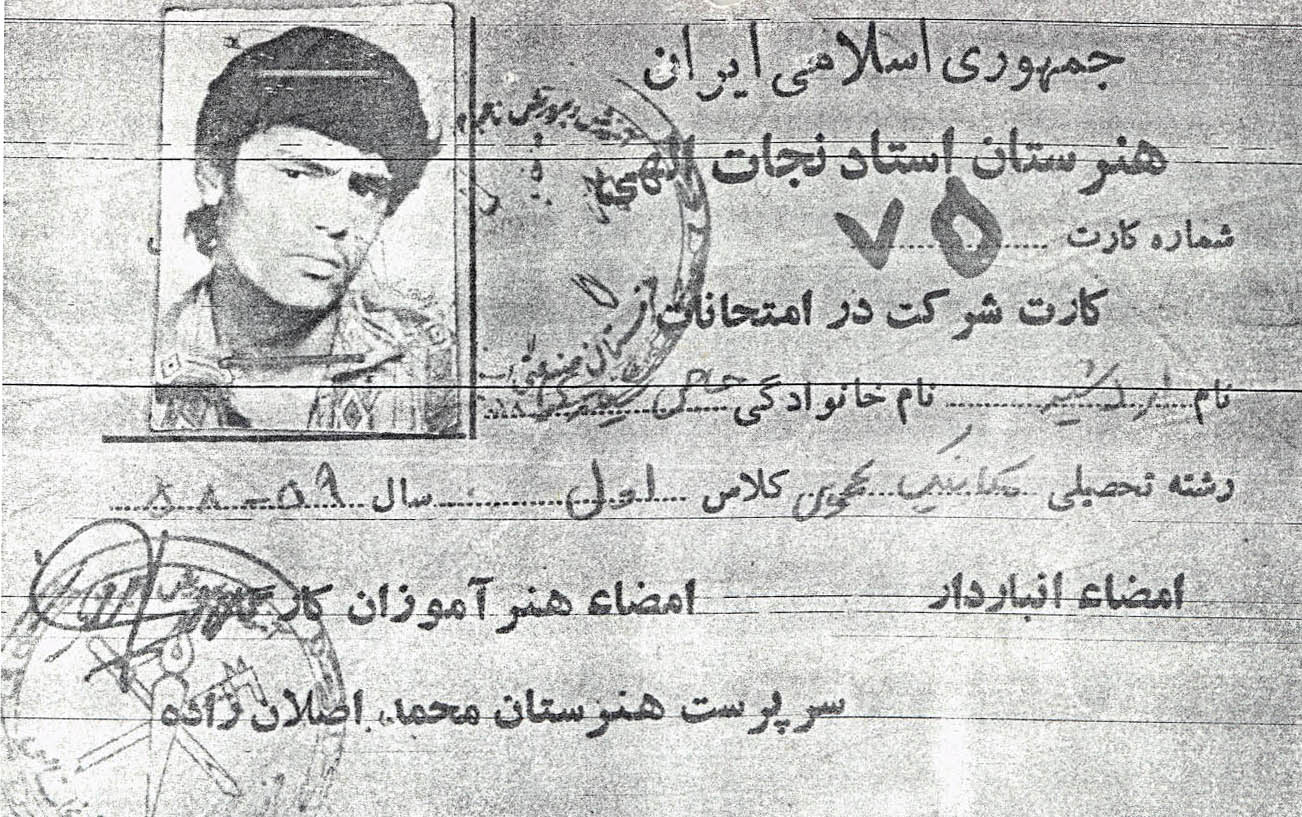 جمهوری اسلامی ایران
هنرستان استاد نجات الهی
شماره کارت ۷۵
کارت شرکت در امتحانات
نام اردشیر نام خانوادگی
رشته تحصیلی مکانیک عمومی کلاس اول سال ۵۹-۵۸
امضاء انباردار امضاء هنرآموزان کارگاهها
سرپرست هنرستان محمد اصلان زاده